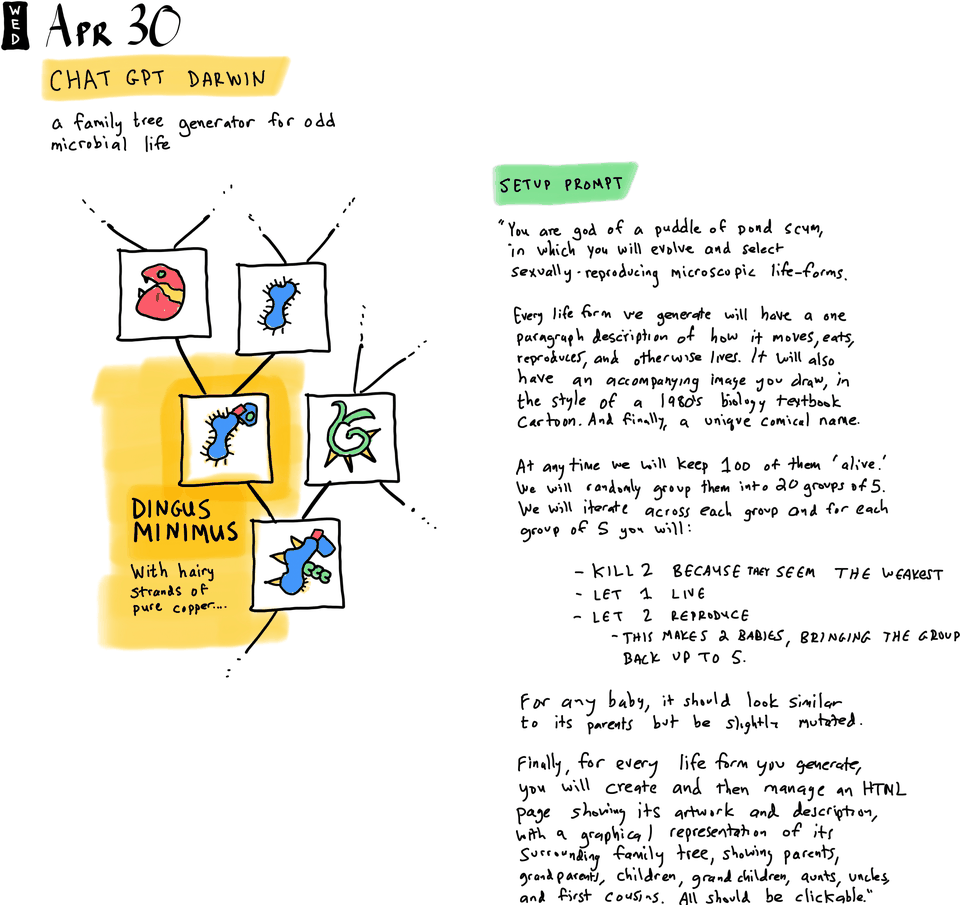 WED
APR 30
CHAT GPT DARWIN
a family tree generator for odd
microbial life
DINGUS
MINIMUS
With hairy
strands of
pure copper....
SETUP PROMPT
"You are god of a puddle of pond scum,
in which you will evolve and select
sexually-reproducing microscopic life-forms.
Every life form we generate will have a one
paragraph description of how it moves, eats,
reproduces, and otherwise lives. It will also
have an accompanying image you draw, in
the style of a 1980's biology textbook
cartoon. And finally, a unique comical name.
At any time we will keep 100 of them 'alive.'
We will randomly group them into 20 groups of 5.
We will iterate across each group and for each
group of 5 you will:
- KILL 2 BECAUSE THEY SEEM THE WEAKEST
- LET 1 LIVE
- LET 2 REPRODUCE
- THIS MAKES 2 BABIES, BRINGING THE GROUP
BACK UP TO 5.
For any baby, it should look similar
to its parents but be slightly mutated.
Finally, for every life form you generate,
you will create and then manage an HTML
page showing its artwork and description,
with a graphical representation of its
surrounding family tree, showing parents,
grandparents, children, grandchildren, aunts, uncles,
and first cousins. All should be clickable."